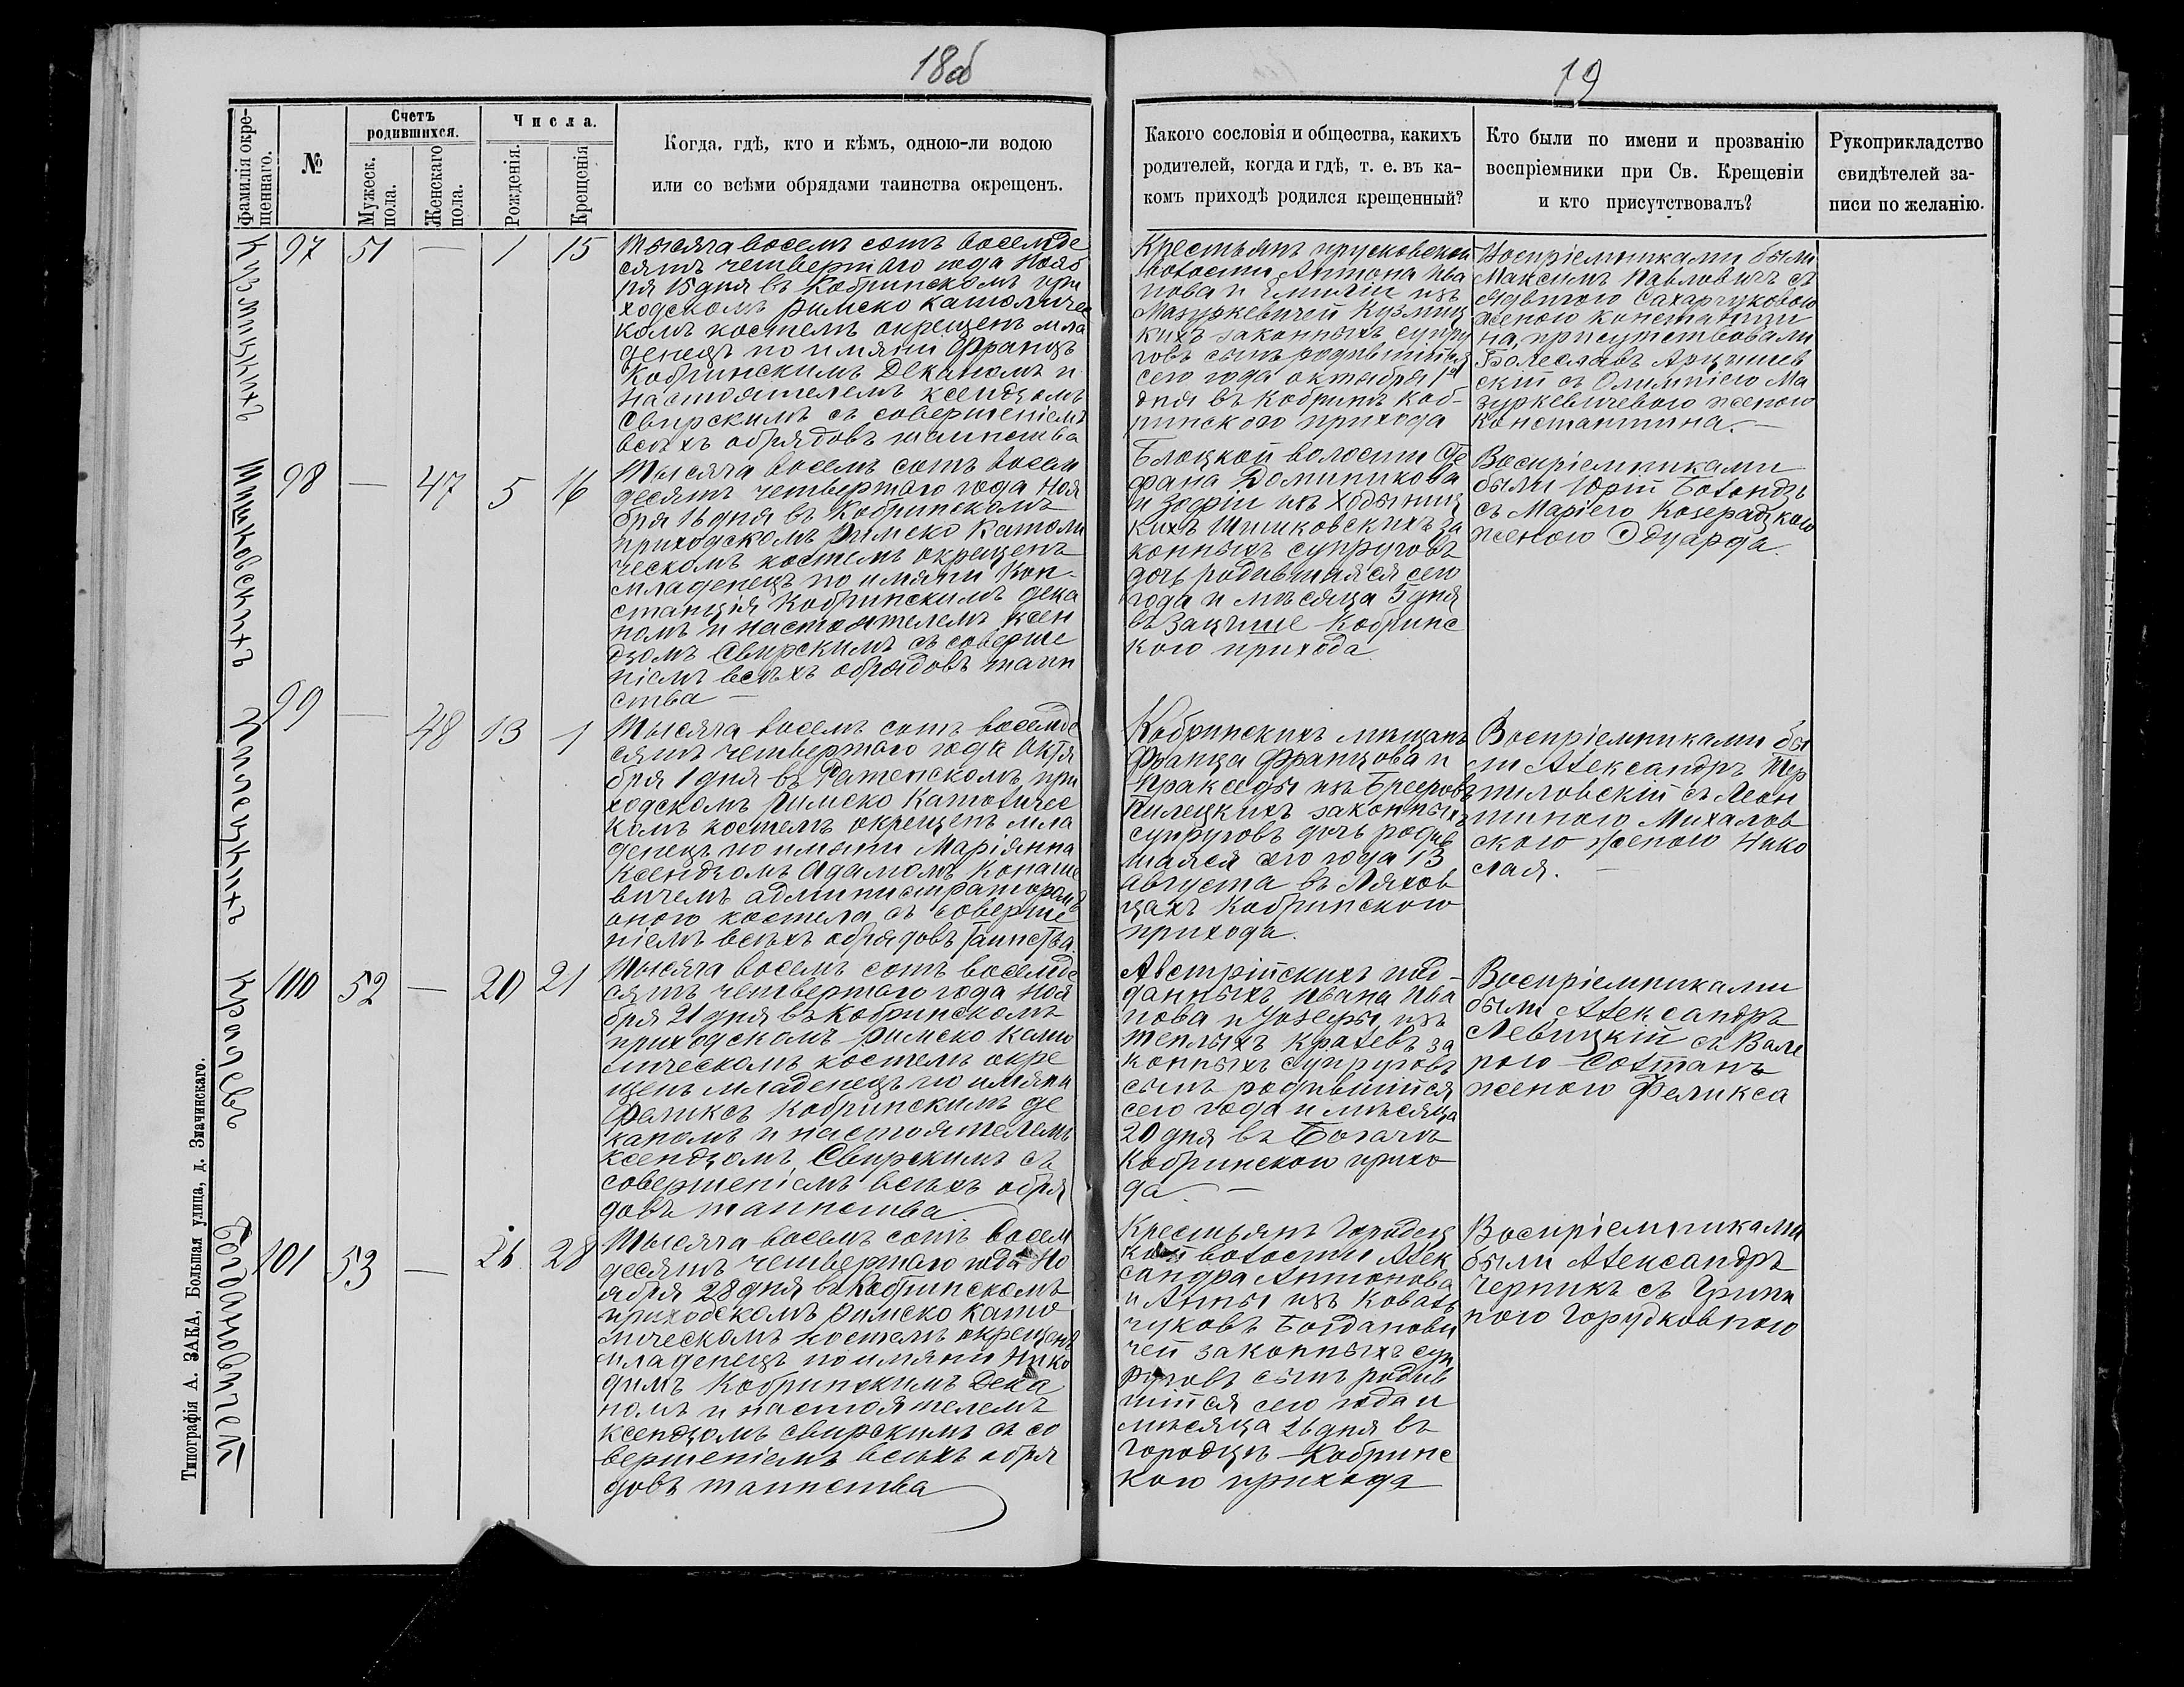 18об
19
Фамилія окре-
щеннаго.
№
Счетъ
родившихся.
Мужеск.
пола.
Женскаго
пола.
Числа.
Рожденія.
Крещенія
Когда, гдѣ, кто и кѣмъ, одною-ли водою
или со всѣми обрядами таинства окрещенъ.
Какого сословія и общества, какихъ
родителей, когда и гдѣ, т. е. въ ка-
комъ приходѣ родился крещенный?
Кто были по имени и прозванію
воспріемники при Св. Крещеніи
и кто присутствовалъ?
Рукоприкладство
свидѣтелей за-
писи по желанію.
Кузмицкихъ
97 51 — 1 15
Тысяча восемъ сотъ восемде
сятъ четвертаго года Нояб
ря 15 дня въ Кобринскомъ при
ходскомъ Римско Католичес
комъ костелѣ окрещенъ мла
денецъ по имяни Францъ
Кобринскимъ Деканомъ и
настоятелемъ ксендзомъ
Свирскимъ съ совершеніемъ
всѣхъ обрядовъ таинства
Крестьянъ прусковской
волости Антона Ива
нова и Емиліи изъ
Мазуркевичей Кузмиц
кихъ законныхъ супру
говъ сынъ родившійся
сего года октября 1го
дня въ Кобринѣ Коб-
ринского прихода
Воспріемниками были
Максимъ Павловичъ съ
Ядвигою Сахарчуковою
женою Константи
на, присутствовали
Болеславъ Арцишев
скій съ Олимпіею Ма
зуркевичевою женою
Константина. —
Шишковскихъ
98 — 47 5 16
Тысяча восемъ сотъ восем
десятъ четвертаго года Ноя
бря 16 дня въ Кобринскомъ
приходскомъ Римско Католи
ческомъ костелѣ окрещенъ
младенецъ по имяни Кон-
станція Кобринскимъ дека
номъ и настоятелемъ ксен
дзомъ Свирскимъ съ соверше
ніемъ всѣхъ обрядовъ таин
ства —
Блоцкой волости Сте
фана Доминикова
и Зофіи изъ Ходыниц
кихъ Шишковскихъ за
конныхъ супруговъ
дочь родившаяся сего
года и мѣсяца 5 дня
въ Зацише Кобринс
кого прихода
Воспріемниками
были Юрій Болондзь
съ Маріею Козерадзкою
женою Эдуарда.
Пилецкихъ
99 — 48 13 1
Тысяча восемъ сотъ восемде
сятъ четвертаго года Октя
бря 1 дня въ Ратенскомъ при
ходскомъ Римско Католичес
комъ костелѣ окрещенъ мла
денецъ по имяни Маріянна
Ксендзомъ Адамомъ Конаше
вичемъ администраторомъ
оного костела съ соверше
ніемъ всѣхъ обрядовъ Таинства.
Кобринскихъ мѣщанъ
Франца Францова и
Пракседы изъ Брееровъ
Пилецкихъ законныхъ
супруговъ дочь родив
шаяся сего года 13
Августа въ Ляхов
цахъ Кобринского
прихода.
Воспріемниками бы
ли Александръ Тер
пиловскій съ Леон
тиною Михалов
скою женою Нико
лая. —
Кралевъ
100 52 — 20 21
Тысяча восемъ сотъ восемде
сятъ четвертаго года Ноя
бря 21 дня въ Кобринскомъ
приходскомъ Римско Като
лическомъ костелѣ окре
щенъ младенецъ по имяни
Феликсъ Кобринскимъ де
каномъ и настоятелемъ
ксендзомъ Свирскимъ съ
совершеніемъ всѣхъ обря
довъ таинства
Австрійскихъ под-
данныхъ Ивана Ива
нова и Юзефы изъ
Теплыхъ Кралевъ за
конныхъ супруговъ
сынъ родившійся
сего года и мѣсяца
20 дня въ Богачѣ
Кобринского прихо
да. —
Воспріемниками
были Александръ
Левицкій съ Вале
рию Солтанъ
женою Феликса
Богдановичей
101 53 — 26 28
Тысяча восемъ сотъ восем
десятъ четвертаго года Но
ября 28 дня въ Кобринскомъ
приходскомъ Римско Като
лическомъ костелѣ окрещенъ
младенецъ по имяни Нико
димъ Кобринскимъ Дека
номъ и настоятелемъ
ксендзомъ Свирскимъ съ со
вершеніемъ всѣхъ обря
довъ таинства
Крестьянъ Городец
кой волости Алек
сандра Антонова
и Анны изъ Коваль
чуковъ Богданови
чей законныхъ суп
руговъ сынъ родив
шійся сего года и
мѣсяца 26 дня въ
Городцѣ Кобринс
кого прихода
Воспріемниками
были Александръ
Черникъ съ
Типографія А. ЗАКА, Большая улица, д. Значинскаго.